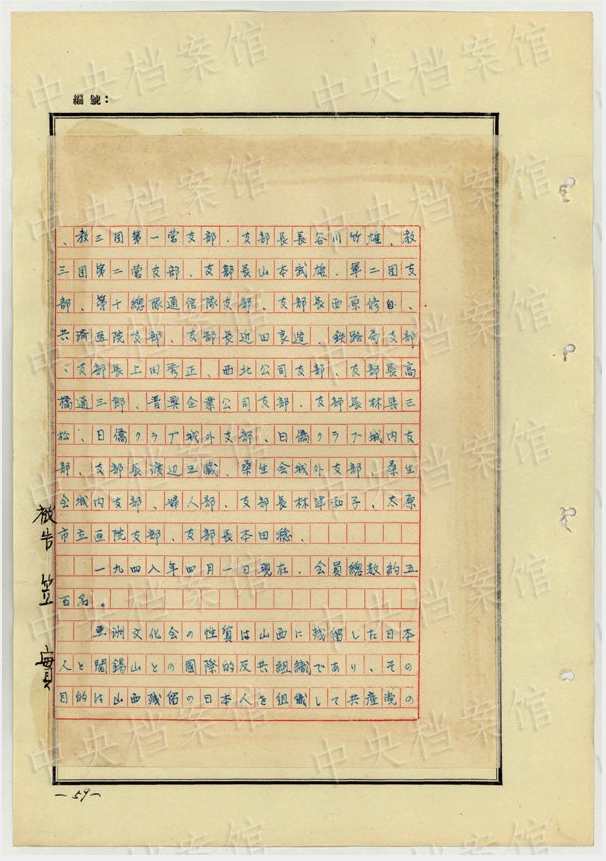 編號：
、教三団第一営支部、支部長長谷川竹雄、教
三団第二営支部、支部長山本武雄、軍二団支
部、第十總隊通信隊支部、支部長西原修自、
共濟医院支部、支部長辺田良造、鉄路局支部
、支部長上田秀正、西北公司支部、支部長高
橋通三郎、晋興企業公司支部、支部長林與三
松、日僑クラブ城外支部、日僑クラブ城内支
部、支部長渡辺五藏、桑生会城外支部、桑生
会城内支部、婦人部、支部長林洋和子、太原
市立医院支部、支部長本田稔、
一九四八年四月一日現在、会員總数約五
百名。
亜洲文化会の性質は山西に残留した日本
人と閻錫山との國際的反共組織であり、その
目的は山西残留の日本人を組織して共産党の
被告 笠 實
—59—
中央档案馆